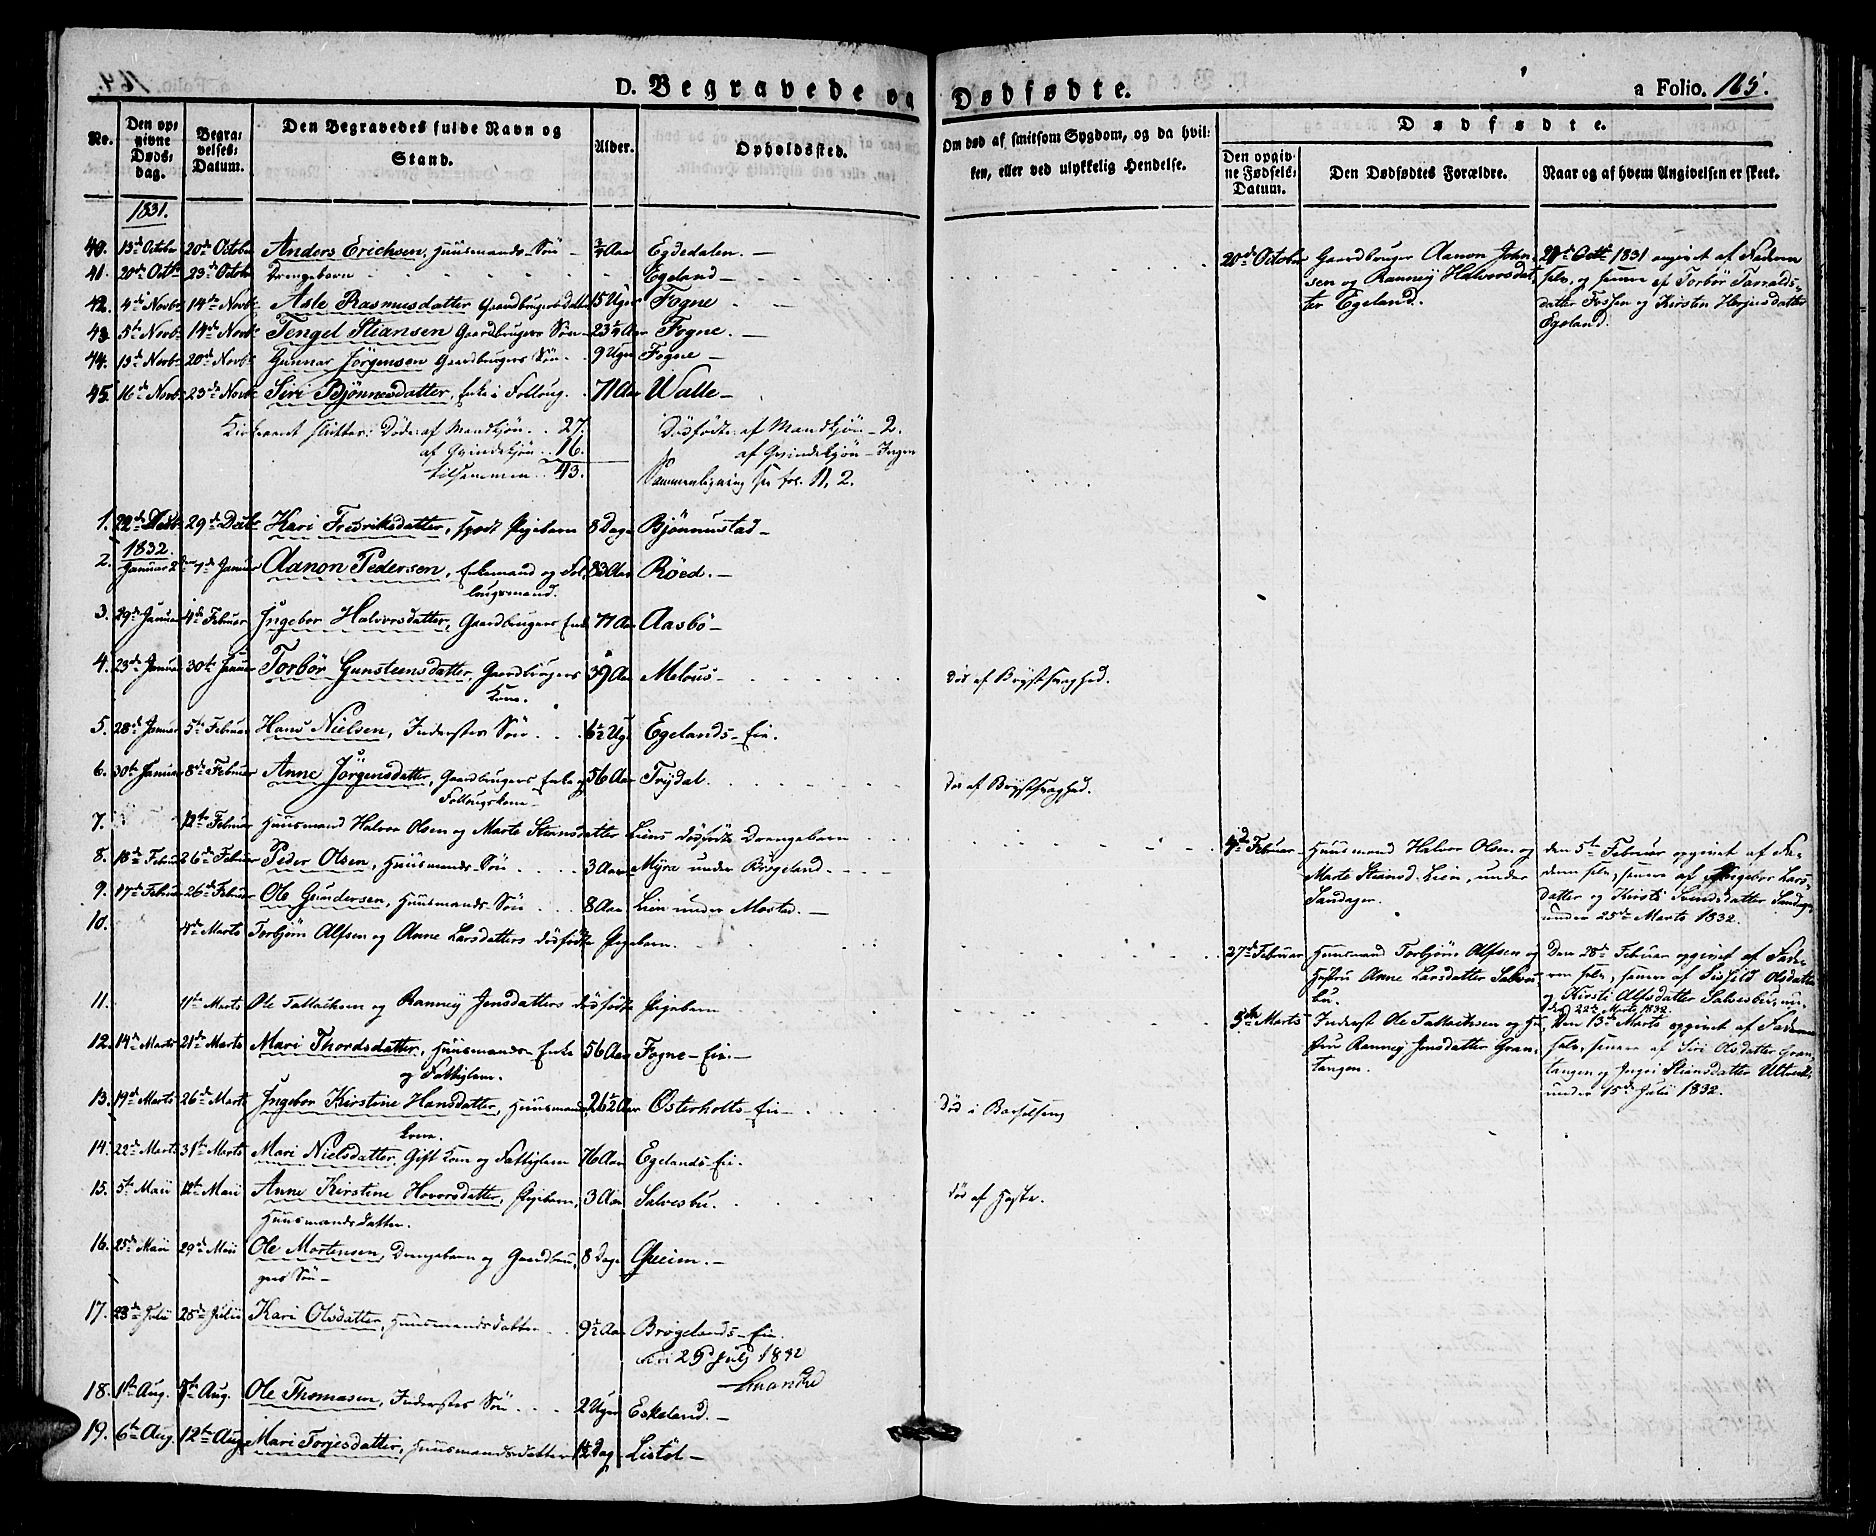 D. Begravede og Dødfødte.
a Folio. 165.
No.
Den opgivne Dødsdag.
Begravelses-Datum.
Den Begravedes fulde Navn og Stand.
Alder.
Opholdssted.
Om død af smitsom Sygdom, og da hvilken, eller ved ulykkelig Hendelse.
Dødfødte.
Den opgivne Fødsels-Datum.
Den Dødfødtes Forældre.
Naar og af hvem Angivelsen er skeet.
1831.
40. 13de October 20de October Anders Erichsen, Huusmands Søn 3/4 Aar Egdedalen.
41. 20de Octbr 23de October Drengebarn Egeland
20de October Gaardbruger Aanon Johnsen og Ranney Halvorsdatter Egeland.
Octbr 1831 angivet af Faderen selv, og senere af Torbør Tarraldsdatter Fossen og Kirsten Egeland.
42. 4de Novbr 14de Novbr Asle Rasmusdatter Gaardbrugers Datt 15 Uger Fogne
43. 5te Novbr 14de Novbr Tengel Stiansen Gaardbrugers Søn 23 Aar Fogne.
44. 13de Novbr 20de Novbr Gunnar Jörgensen Gaardbrugers Søn 9 Uger Fogne
45. 16de Novbr 23de Novbr Siri Bjönnesdatter, Enke i Folloug. 71 Aar Walle
Kirkeaaret slutter: Døde af Mandkjøn 27.
af Qvindekjøn 16.
tilsammen 43.
Dødfødte af Mandkjøn 2.
af Qvindekjøn Ingen
Sammenligning see fol. N. 2.
1. 22de Decbr 29de Decbr Kari Fredriksdatter, spædt Pigebarn 8 Dage Bjönnustad
1832.
2. Januar 2den 7de Januar Aanon Pedersen, Enkemand og Follougsmand. 83 Aar Röed.
3. 29de Januar 4de Februar Ingebor Halvorsdatter, Gaardbrugers Enke 77 Aar Aasbö
4. 23de Januar 30te Januar Torbör Gunsteensdatter, Gaardbrugers Kone. 39 Aar Melöus
død af Brystsvaghed.
5. 28de Januar 5te Februar Hans Nielsen, Inderstes Søn 6½ Ug. Egelands-Eie.
6. 30te Januar 8de Februar Anne Jörgensdatter, Gaardbrugers Enke og Follougskone 56 Aar Trydal.
død af Brystsvaghed.
7. 12te Februar Huusmand Halvor Olsen og Marte Steansdatter Liens dødfødte Drengebarn
4de Februar Huusmand Halvor Olsen og Marte Steansd. Lien, under Sandager.
den 5te Februar opgivet af Faderen selv, senere af Ingebor Larsdatter og Kirsti Svendsdatter under 25de Marts 1832.
8. 18de Februar 26de Februar Peder Olsen, Huusmands Søn 3 Aar Myre under Brögeland.
9. 17de Februar 26de Februar Ole Gundersen, Huusmands Søn 8 Aar Lien under Mostad.
10. 4de Marts Torbjörn Alfsen og Anne Larsdatters dødfødte Pigebarn.
27de Februar Huusmand Torbjörn Alfsen og Hustru Anne Larsdatter Salvesbu.
Den 28de Februar opgivet af Faderen selv, senere af Sishild Olsdatter og Kirsti Alfsdatter Salvesbu, under 22de Marts 1832.
11. 11te Marts Ole Tallaksen og Ranney Jensdatters dødfødte Pigebarn
5te Marts Inderst Ole Tallaksen og Hustru Ranney Jensdatter Grantangen.
Den 13de Marts opgivet af Faderen selv, senere af Siri Olsdatter Grantangen og Ingri Steansdatter under 15de Julii 1832.
12. 14de Marts 21de Marts Mari Thordsdatter, Huusmands-Enke og Fattiglem. 56 Aar Fogne-Eie.
13. 19de Marts 26de Marts Ingebor Kirstine Hansdatter, Huusmands kone. 26½ Aar Österholts-Eie
død i Barselseng
14. 22de Marts 31te Marts Mari Nielsdatter, Gift Kone og Fattiglem 76 Aar Egelands-Eie.
15. 5te Maii 12te Maii Anne Kirstine Hovorsdatter, Pigebarn, Huusmandsdatter. 3 Aar Salvesbu.
død af Hoste.
16. 25de Maii 29de Maii Ole Mortensen, Drengebarn og Gaardbrugers Søn 8 Dage Qveim.
17. 23de Julii 25de Julii Kari Olsdatter, Huusmandsdatter 9½ Aar Brögelands-Eie.
25 July 1832
18. 1ste Aug. Aug. Ole Thomasen, Inderstes Søn 2 Uger Eskeland.
19. 6te Aug. 12te Aug Mari Torjesdatter, Huusmandsdatter Dag Listöl